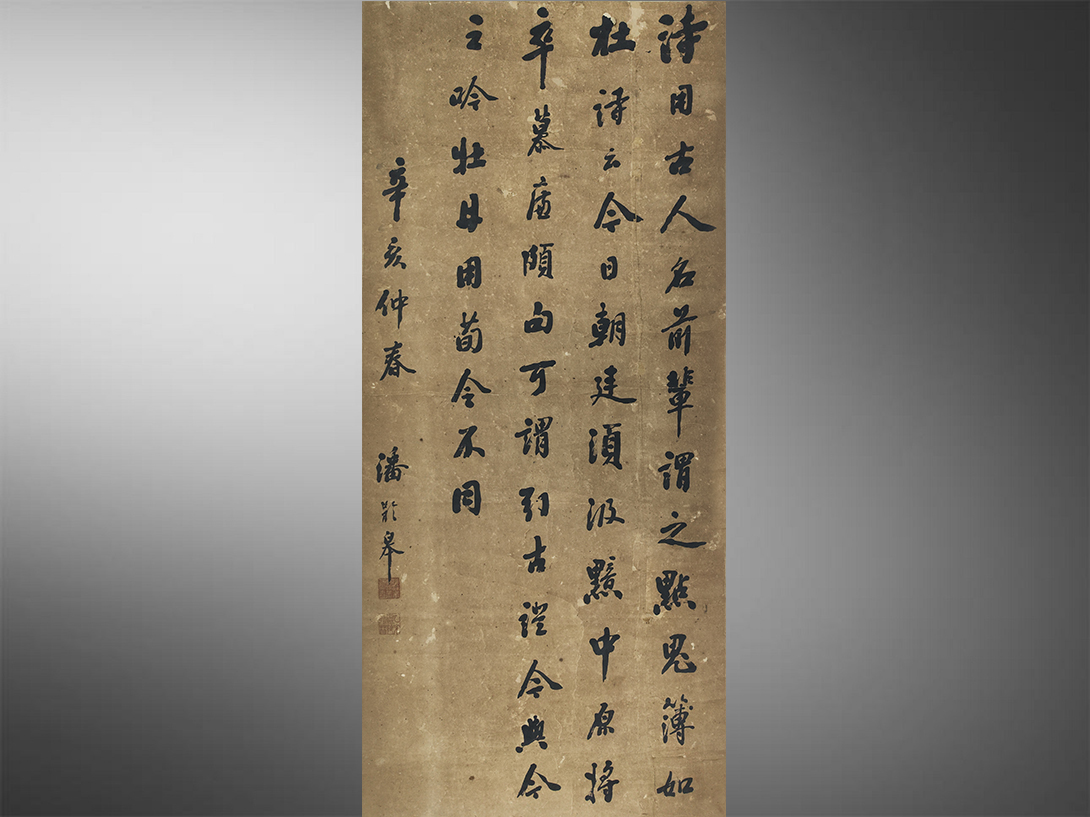 詩用古人名前輩謂之點鬼簿如
杜詩云今日朝廷須汲黯中原將
卒慕廉頗句可謂引古證今與今
之吟牡丹用荀令不同
辛亥仲春 潘齡皋